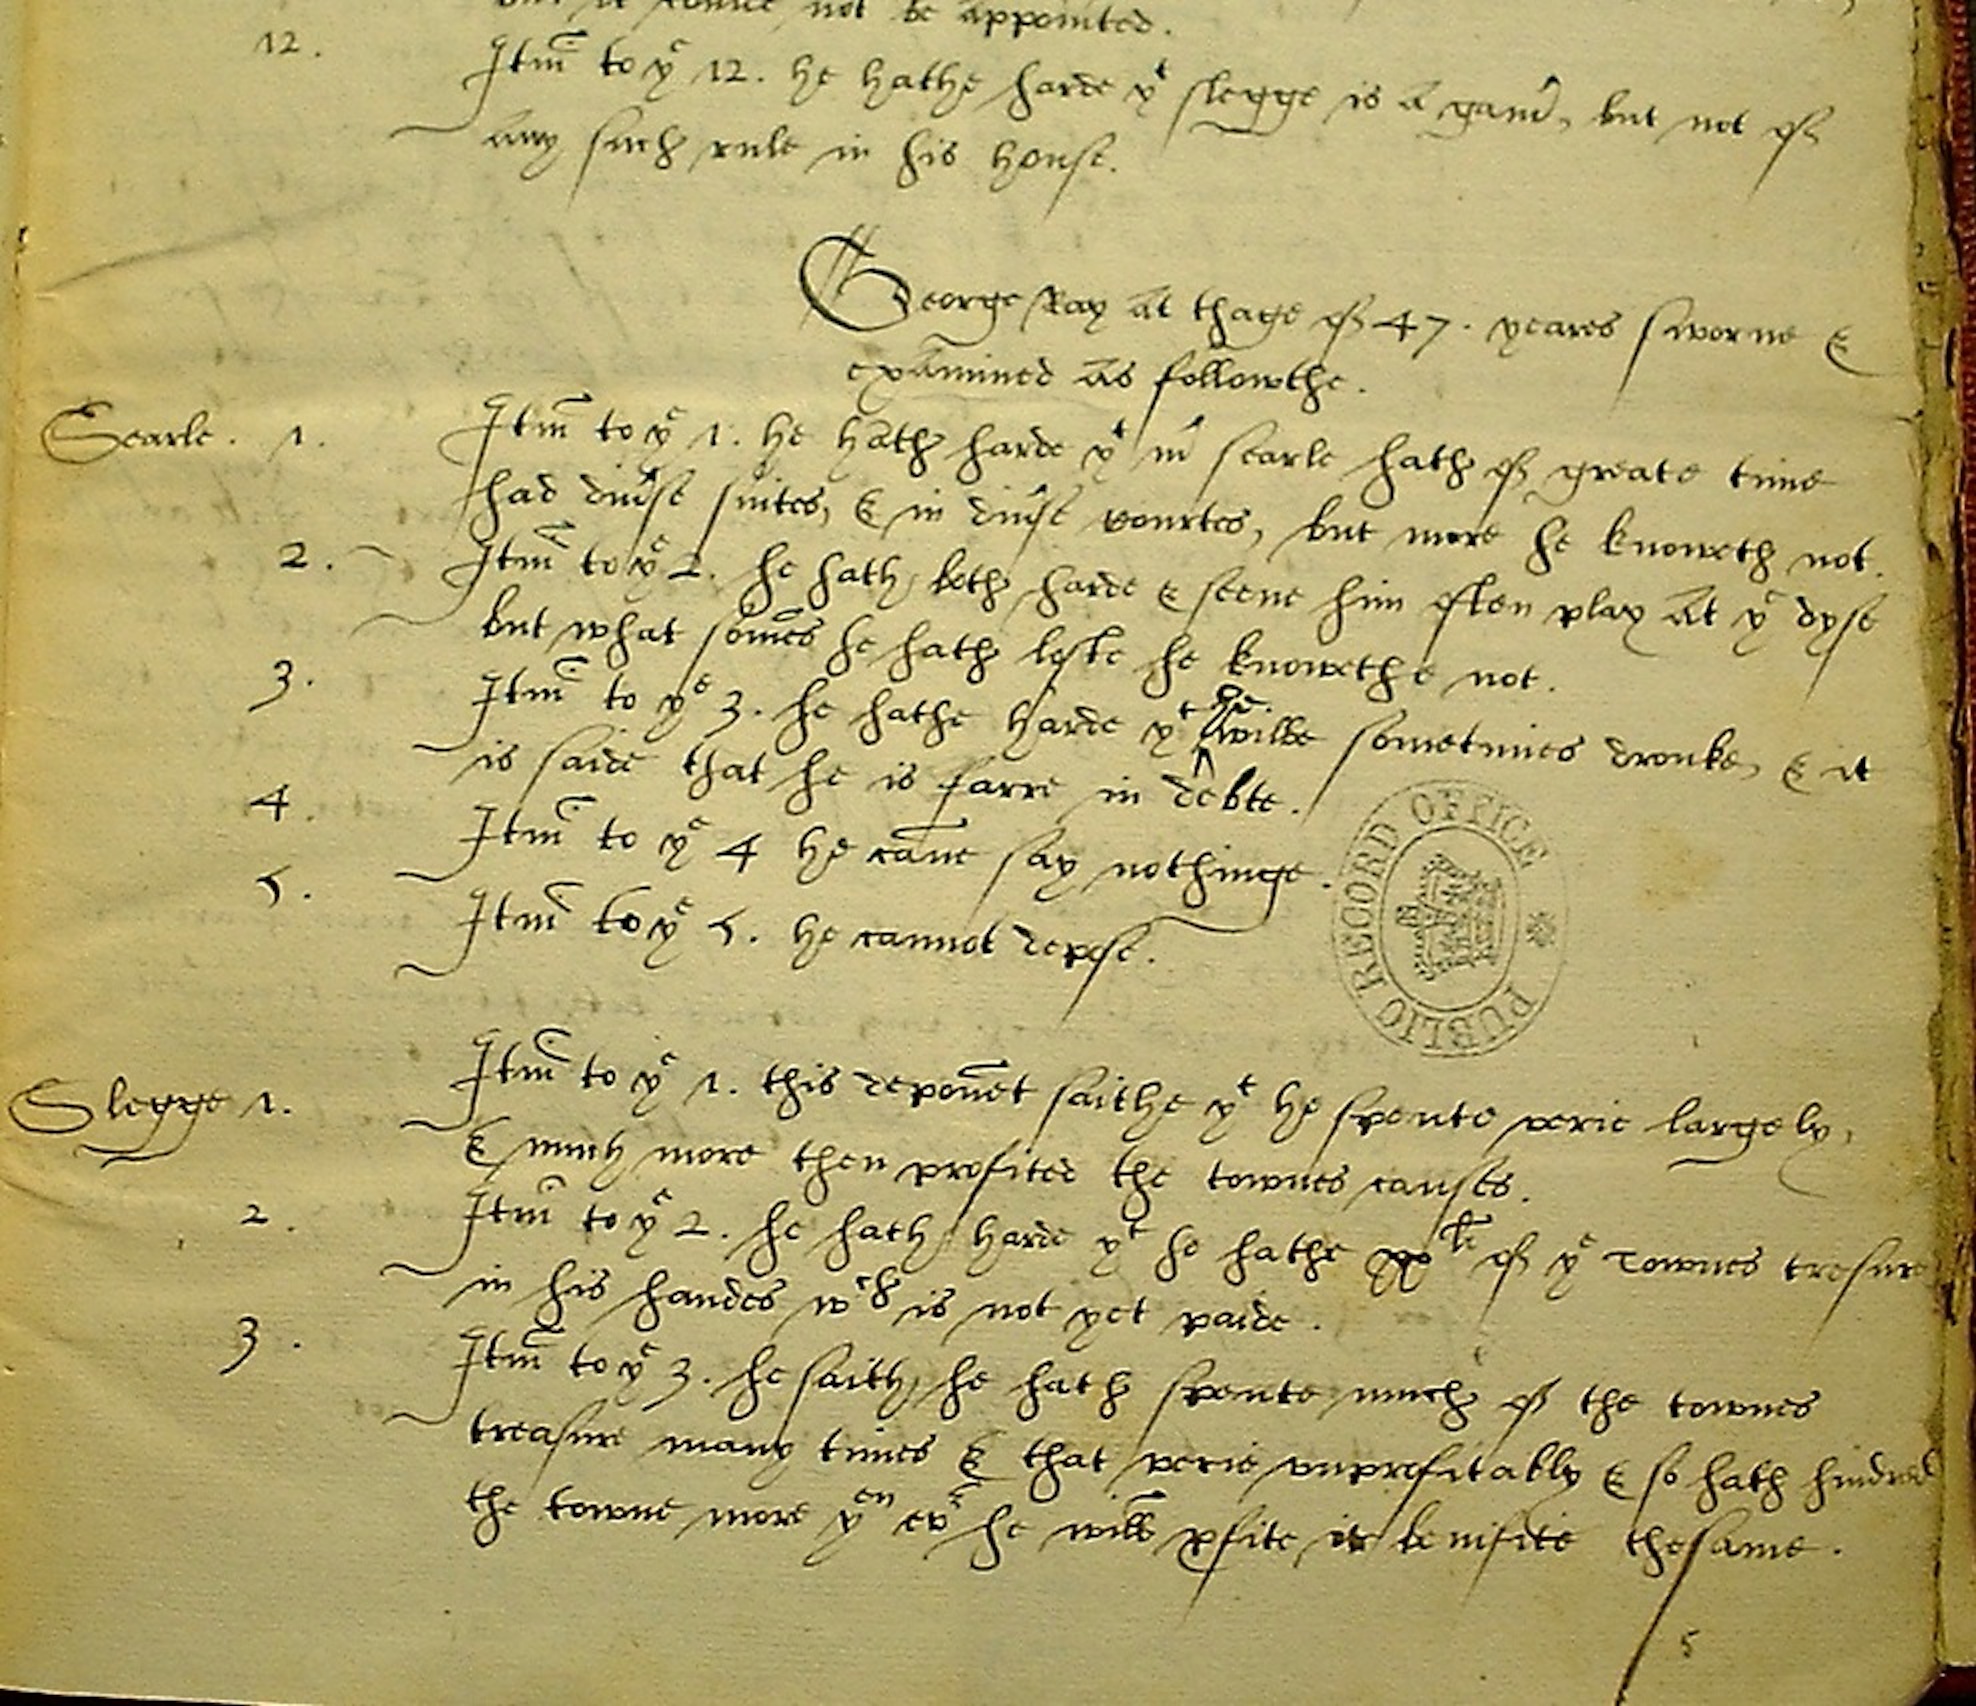 but it coulde not be appointed.
12. Itm̃ to yᵉ 12. he hathe harde yᵗ slegge is a gamr̃, but not of
any such rule in his house.
George Ray at thage of 47. yeares sworne &
examined as followthe.
Searle. 1. Itm̃ to yᵉ 1. he hath harde yᵗ mʳ searle hath of greate time
had diuʳse suites, & in diuʳse courtes, but more he knoweth not.
2. Itm̃ to yᵉ 2. he hath both harde & seene him often play at yᵉ dyse
but what som̃es he hath loste he knowethe not.
3. Itm̃ to yᵉ 3. he hathe harde yᵗ he wilbe sometimes dronke, & it
is saide that he is farre in debte.
4. Itm̃ to yᵉ 4 he cañe say nothinge.
5. Itm̃ to yᵉ 5. he cannot depose.
PUBLIC RECORD OFFICE
Slegge 1. Itm̃ to yᵉ 1. this depoñet saithe yᵗ he spente verie largely,
& much more then profited the townes causes.
2. Itm̃ to yᵉ 2. he hath harde yᵗ he hathe xxˡⁱ of yᵉ Townes tresure
in his handes wᶜʰ is not yet paide.
3. Itm̃ to yᵉ 3. he saith he hath spente much of the townes
treasure many times & that verie vnprofitably & so hath hindred
the towne more yᵉⁿ evʳ he will pfite or benifite thesame.
5